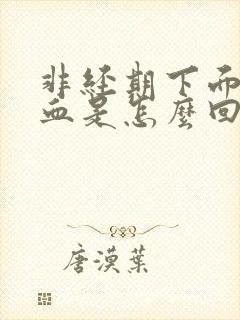 非經期下而
血是怎麼回
唐漠葉